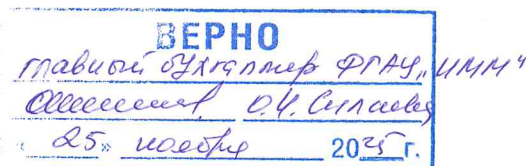 ВЕРНО
главный бухгалтер ФГАУ „ИММ"
О.И.
« 25 » ноября 2025 г.